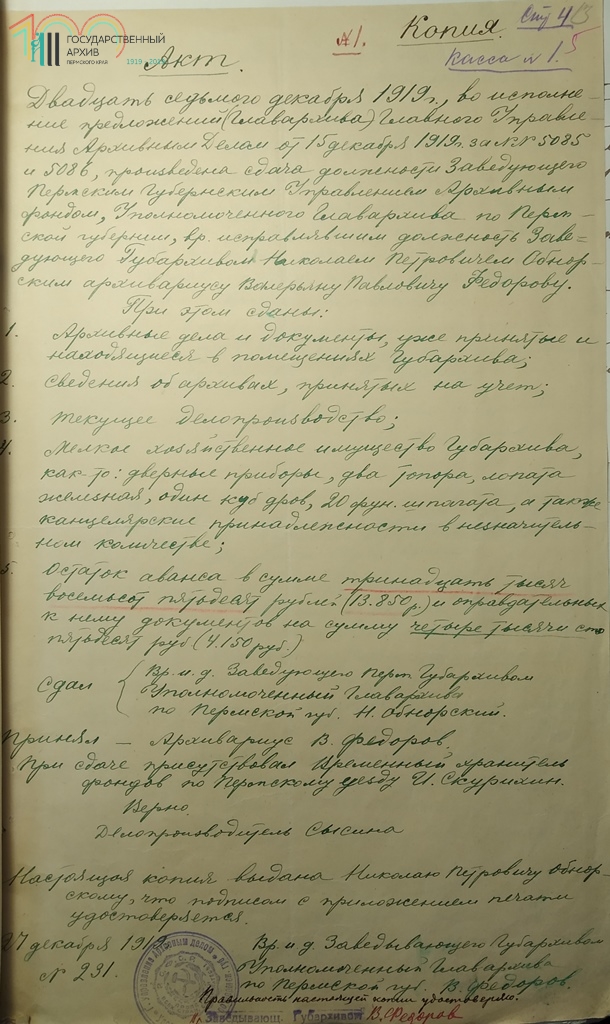 100
ГОСУДАРСТВЕННЫЙ
АРХИВ
ПЕРМСКОГО КРАЯ
1919
№1.
Копия.
Стр 4
Касса №1.
Акт.
Двадцать седьмого декабря 1919 г., во исполне-
ние предложений (Главархива) Главного Управле-
ния Архивным Делом от 15 декабря 1919 г. за №№ 5085
и 5086, произведена сдача должности Заведующего
Пермским Губернским Управлением Архивным
фондом, Уполномоченного Главархива по Перм-
ской губернии, вр. исправлявшим должность Заве-
дующего Губархивом Николаем Петровичем Обнор-
ским архивариусу Валерьяну Павловичу Федорову.
При этом сданы:
1. Архивные дела и документы, уже принятые и
находящиеся в помещениях Губархива;
2. Сведения об архивах, принятых на учет;
3. Текущее делопроизводство;
4. Мелкое хозяйственное имущество Губархива,
как то: дверные приборы, два топора, лопата
железная, один куб дров, 20 фун. шпагата, а также
канцелярские принадлежности в незначитель-
ном количестве;
5. Остаток аванса в сумме тринадцать тысяч
восемьсот пятьдесят рублей (13.850 р.) и оправдательных
к нему документов на сумму четыре тысячи сто
пятьдесят руб (4.150 руб.)
Сдал
Вр. и. д. Заведующего Перм. Губархивом
Уполномоченный Главархива
по Пермской губ. Н. Обнорский.
Принял — Архивариус В. Федоров.
При сдаче присутствовал Временный хранитель
фондов по Пермскому уезду И. Скурихин.
Верно
Делопроизводитель Сысина
Настоящая копия выдана Николаю Петровичу Обнор-
скому, что подписом с приложением печати
удостоверяется.
27 декабря 1919
№ 231.
Вр. и д. Заведывающего Губархивом
Уполномоченный Главархива
по Пермской губ. В. Федоров.
Правильность настоящей копии удостоверяю.
Заведывающ. Губархивом В. Федоров